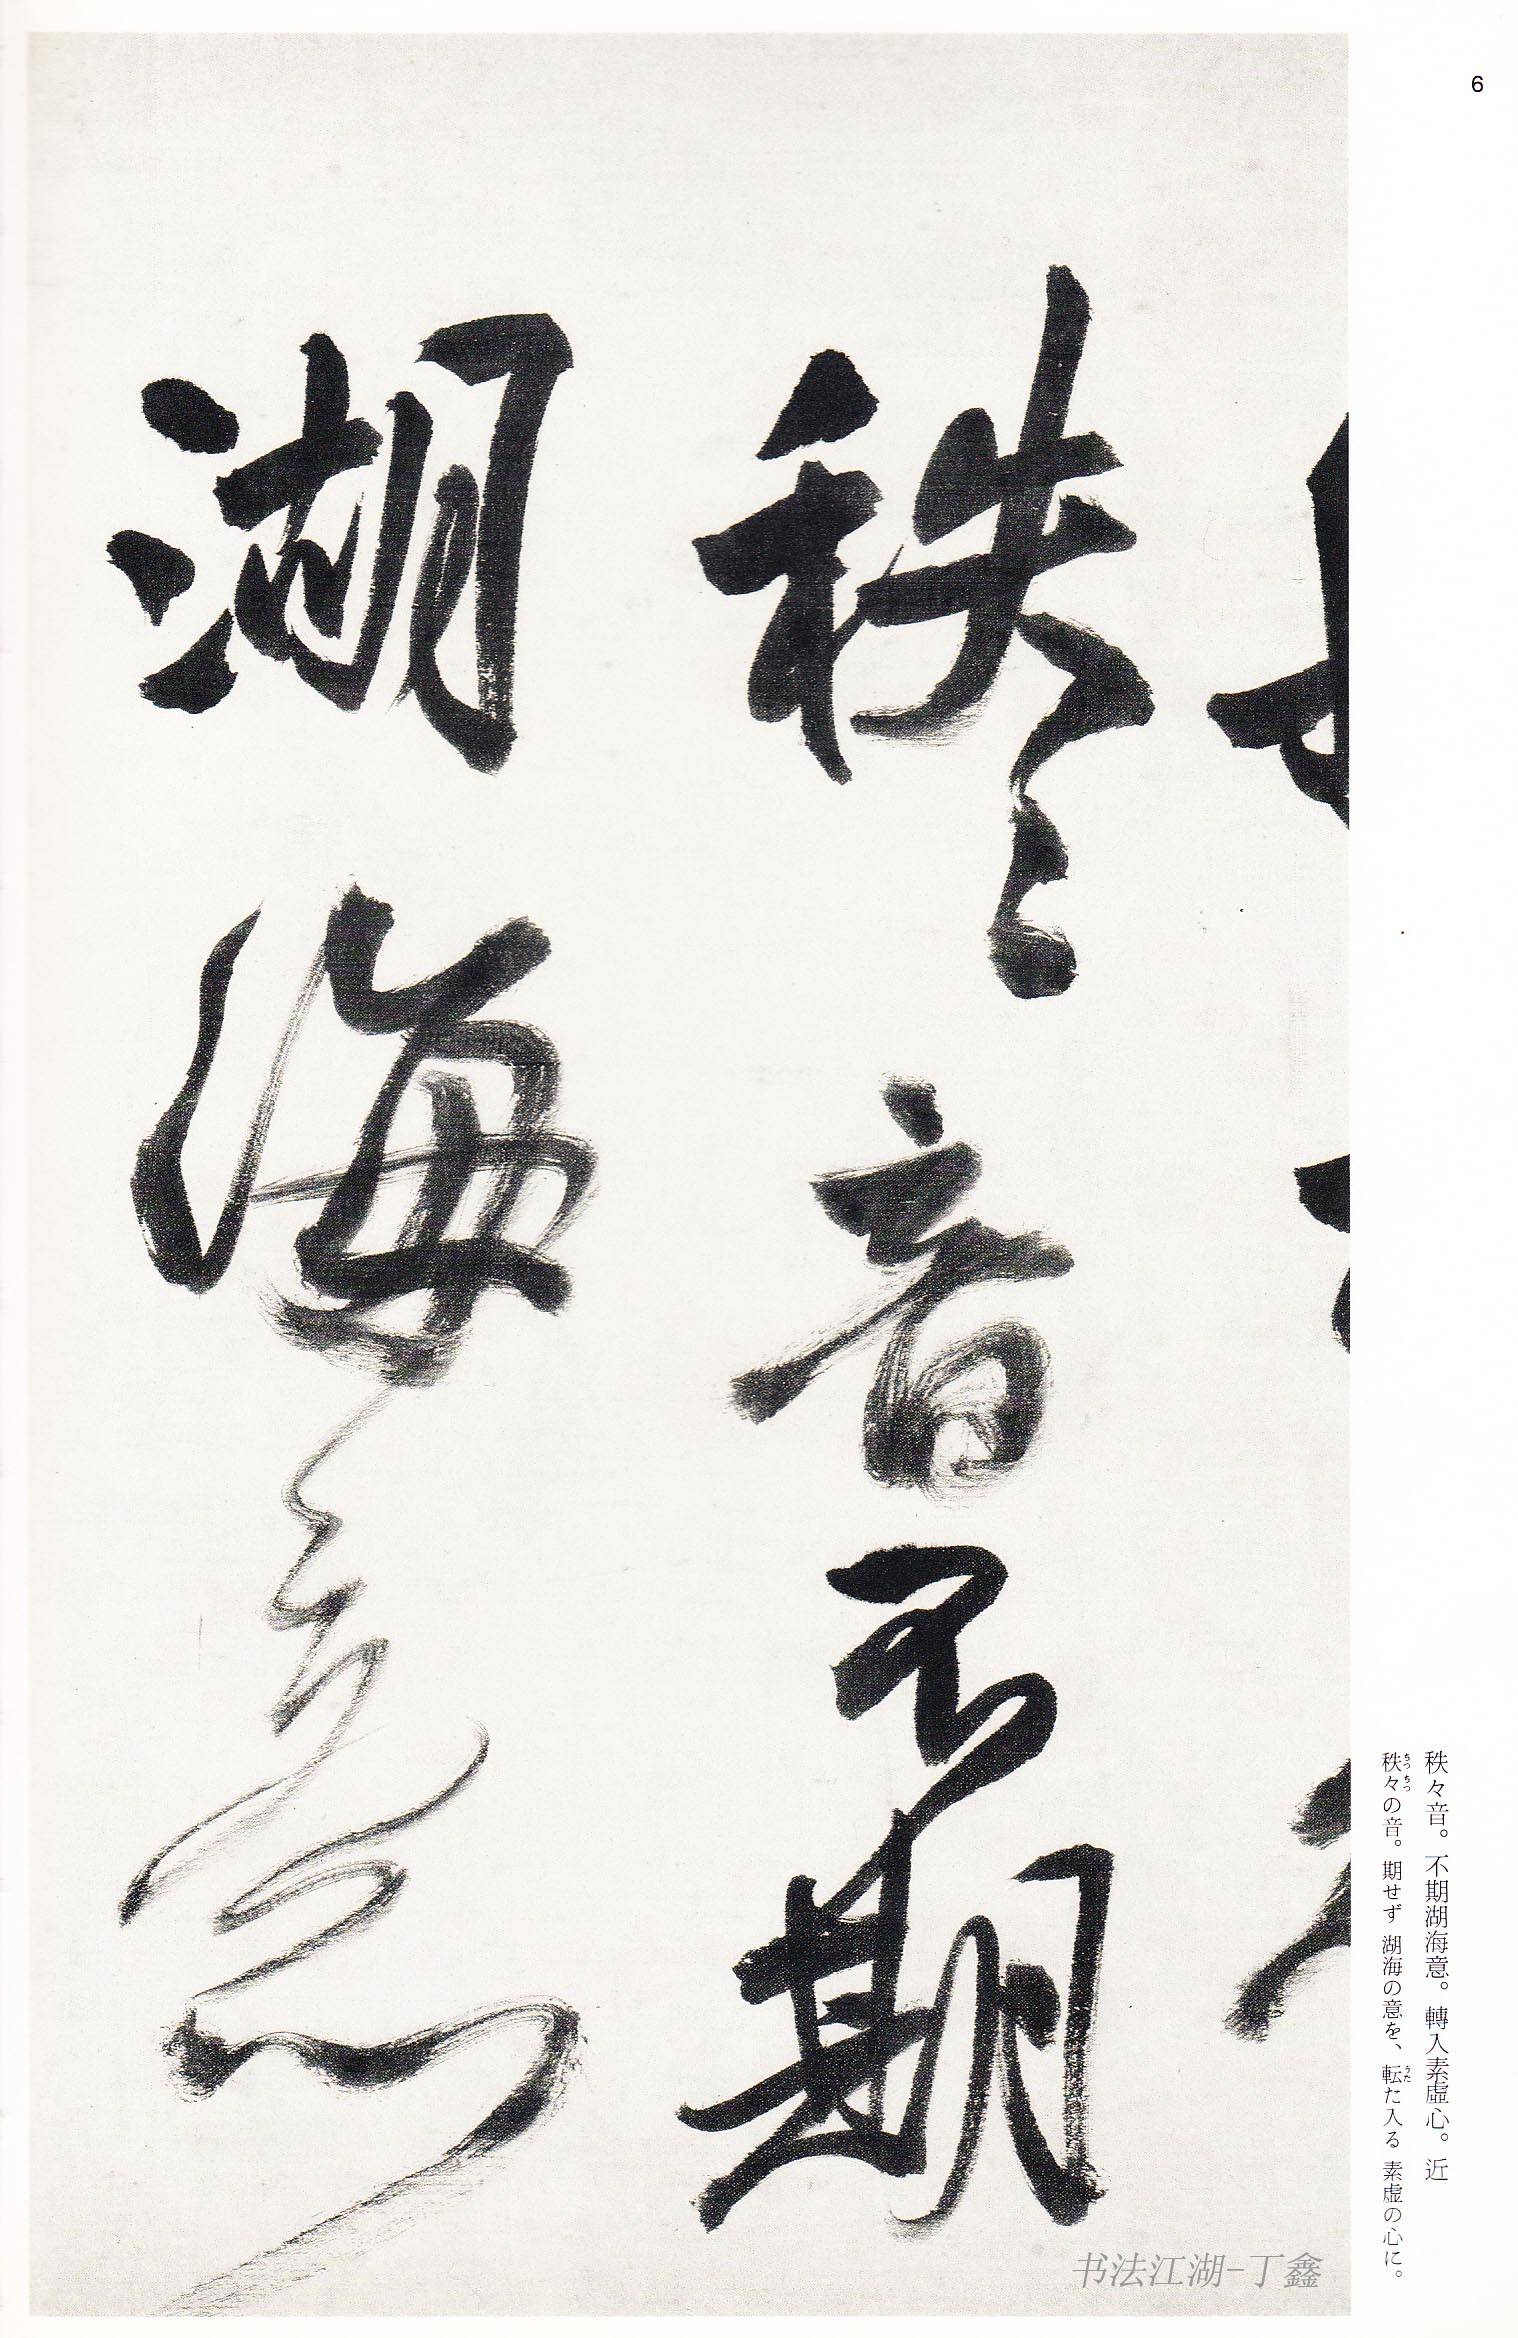 6
秩々音不期
湖海意
秩々音。不期湖海意。轉入素虛心。近
秩々の音。期せず 湖海の意を、転た入る 素虚の心に。
ちつちつ
うた
书法江湖-丁鑫